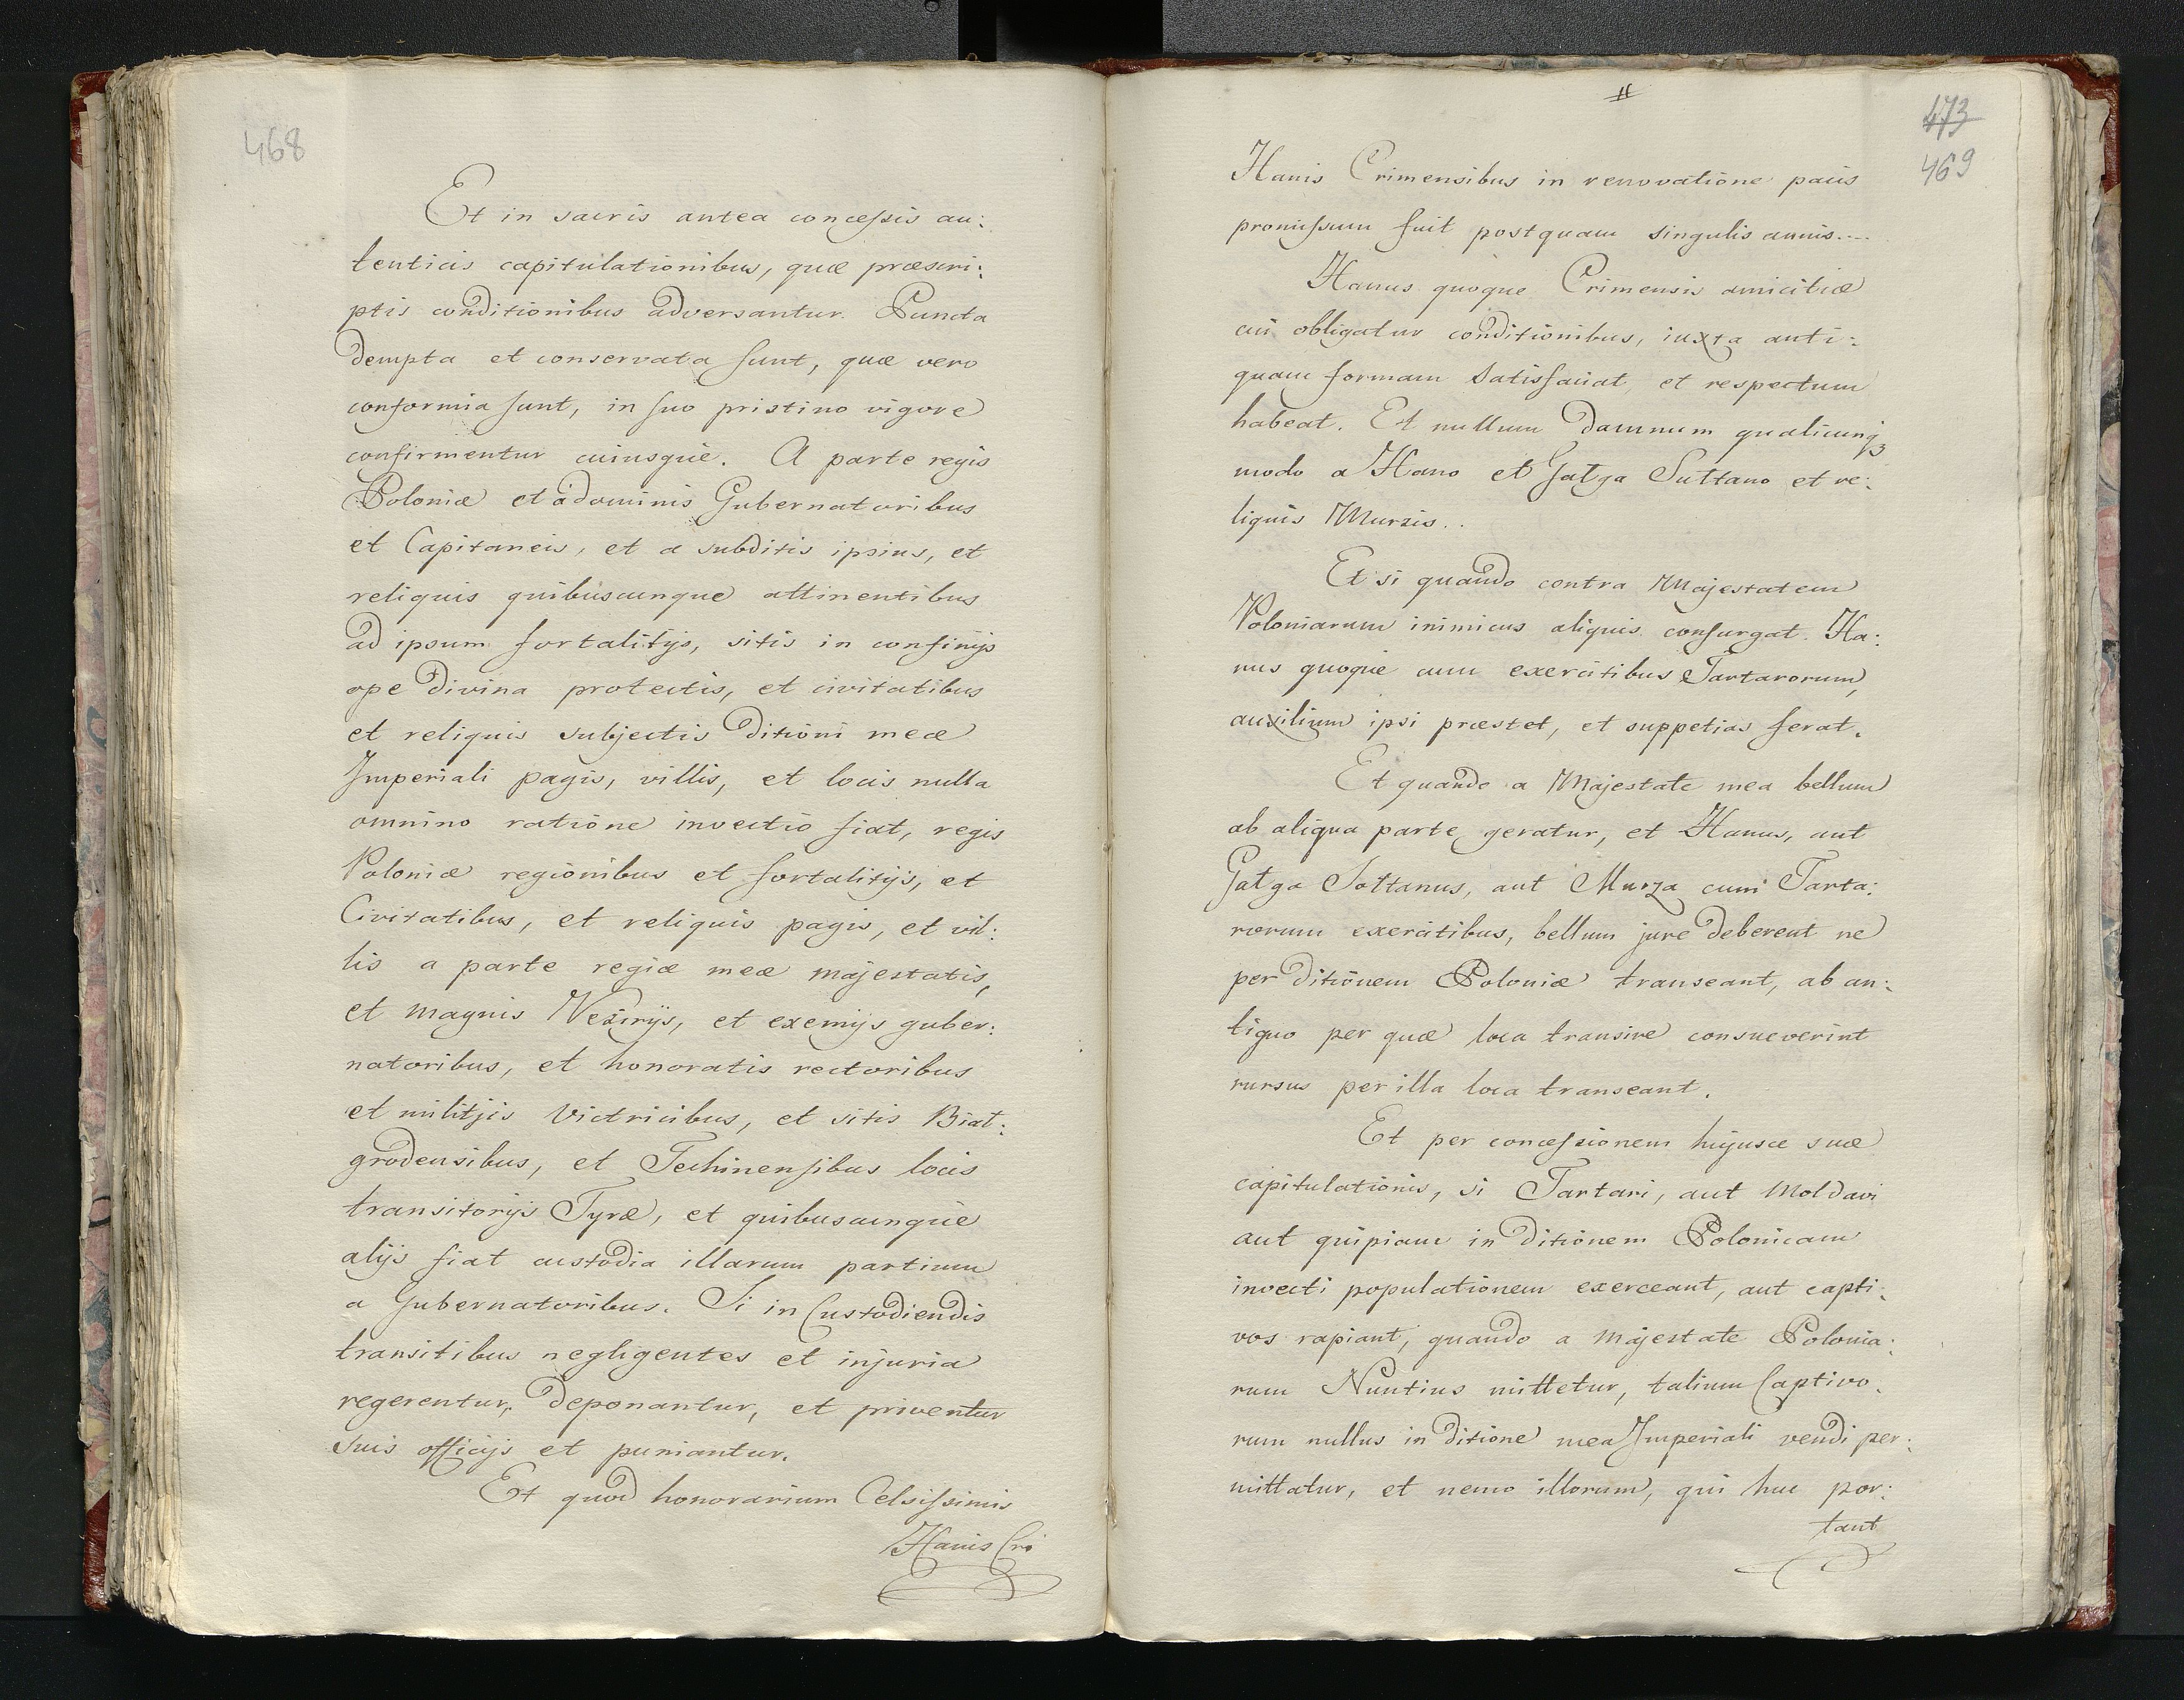 468
Et in sacris antea concessis au:
tenticis capitulationibus, quæ præscri:
ptis conditionibus adversantur. Puncta
dempta et conservata sunt, quæ vero
conformia sunt, in suo pristino vigore
confirmentur cuiusque. A parte regis
Poloniæ et a dominis Gubernatoribus
et Capitaneis, et a subditis ipsius, et
reliquis quibuscunque attinentibus
ad ipsum fortalitijs, sitis in confinijs
ope divina protectis, et civitatibus
et reliquis subjectis ditioni meæ
Imperiali pagis, villis, et locis nulla
omnino ratione invectio fiat, regis
Poloniæ regionibus et fortalitijs, et
Civitatibus, et reliquis pagis, et vil:
lis a parte regiæ meæ majestatis,
et magnis Vezirijs, et exemijs guber:
natoribus, et honoratis rectoribus
et militjis victricibus, et sitis Biat:
grodensibus, et Techinensibus locis
transitorijs Tyræ, et quibuscunque
alijs fiat custodia illarum partium
a Gubernatoribus. Si in Custodiendis
transitibus negligentes et injuria
regerentur, deponantur, et priventur
suis officijs et puniantur.
Et quod honorarium Celsissimis
Hanis Cri
473
469
Hanis Crimensibus in renovatione pacis
promissum fuit postquam singulis annis....
Hanus quoque Crimensis amicitiæ
cui obligatur conditionibus, iuxta anti:
quam formam satisfaciat, et respectum
habeat. Et nullum damnum qualicunq3
modo a Hano et Gatga Suttano et re:
liquis Murzis..
Et si quando contra Majestatem
Poloniarum inimicus aliquis consurgat. Ha:
nus quoque cum exercitibus Tartarorum,
auxilium ipsi præstet, et suppetias ferat.
Et quando a Majestate mea bellum
ab aliqua parte geratur, et Hanus, aut
Gatga Sottanus, aut Murza cum Tarta:
rorum exercitibus, bellum jure deberent ne
per ditionem Poloniæ transeant, ab an:
tiquo per quæ loca transire consueverint
rursus per illa loca transeant.
Et per concessionem hujusce suæ
capitulationis, si Tartari, aut Moldavi
aut quipiam in ditionem Polonicam
invecti populationem exerceant, aut capti:
vos rapiant, quando a majestate Polonia:
rum Nuntius mittetur, talium Captivo:
rum nullus in ditione mea Imperiali vendi per:
mittatur, et nemo illorum, qui huc por:
tant